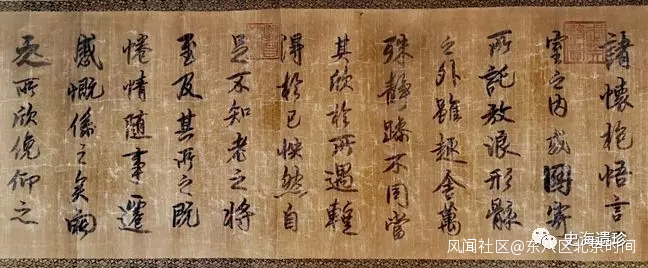 諸懷抱悟言
室之内或因寄
所託放浪形骸
之外雖趣舍萬
殊靜躁不同當
其欣於所遇輒
得於己怏然自
足不知老之將
至及其所之既
惓情隨事遷
感慨係之矣向
之所欣俛仰之
史海遗珍
风闻社区@东八区北京时间